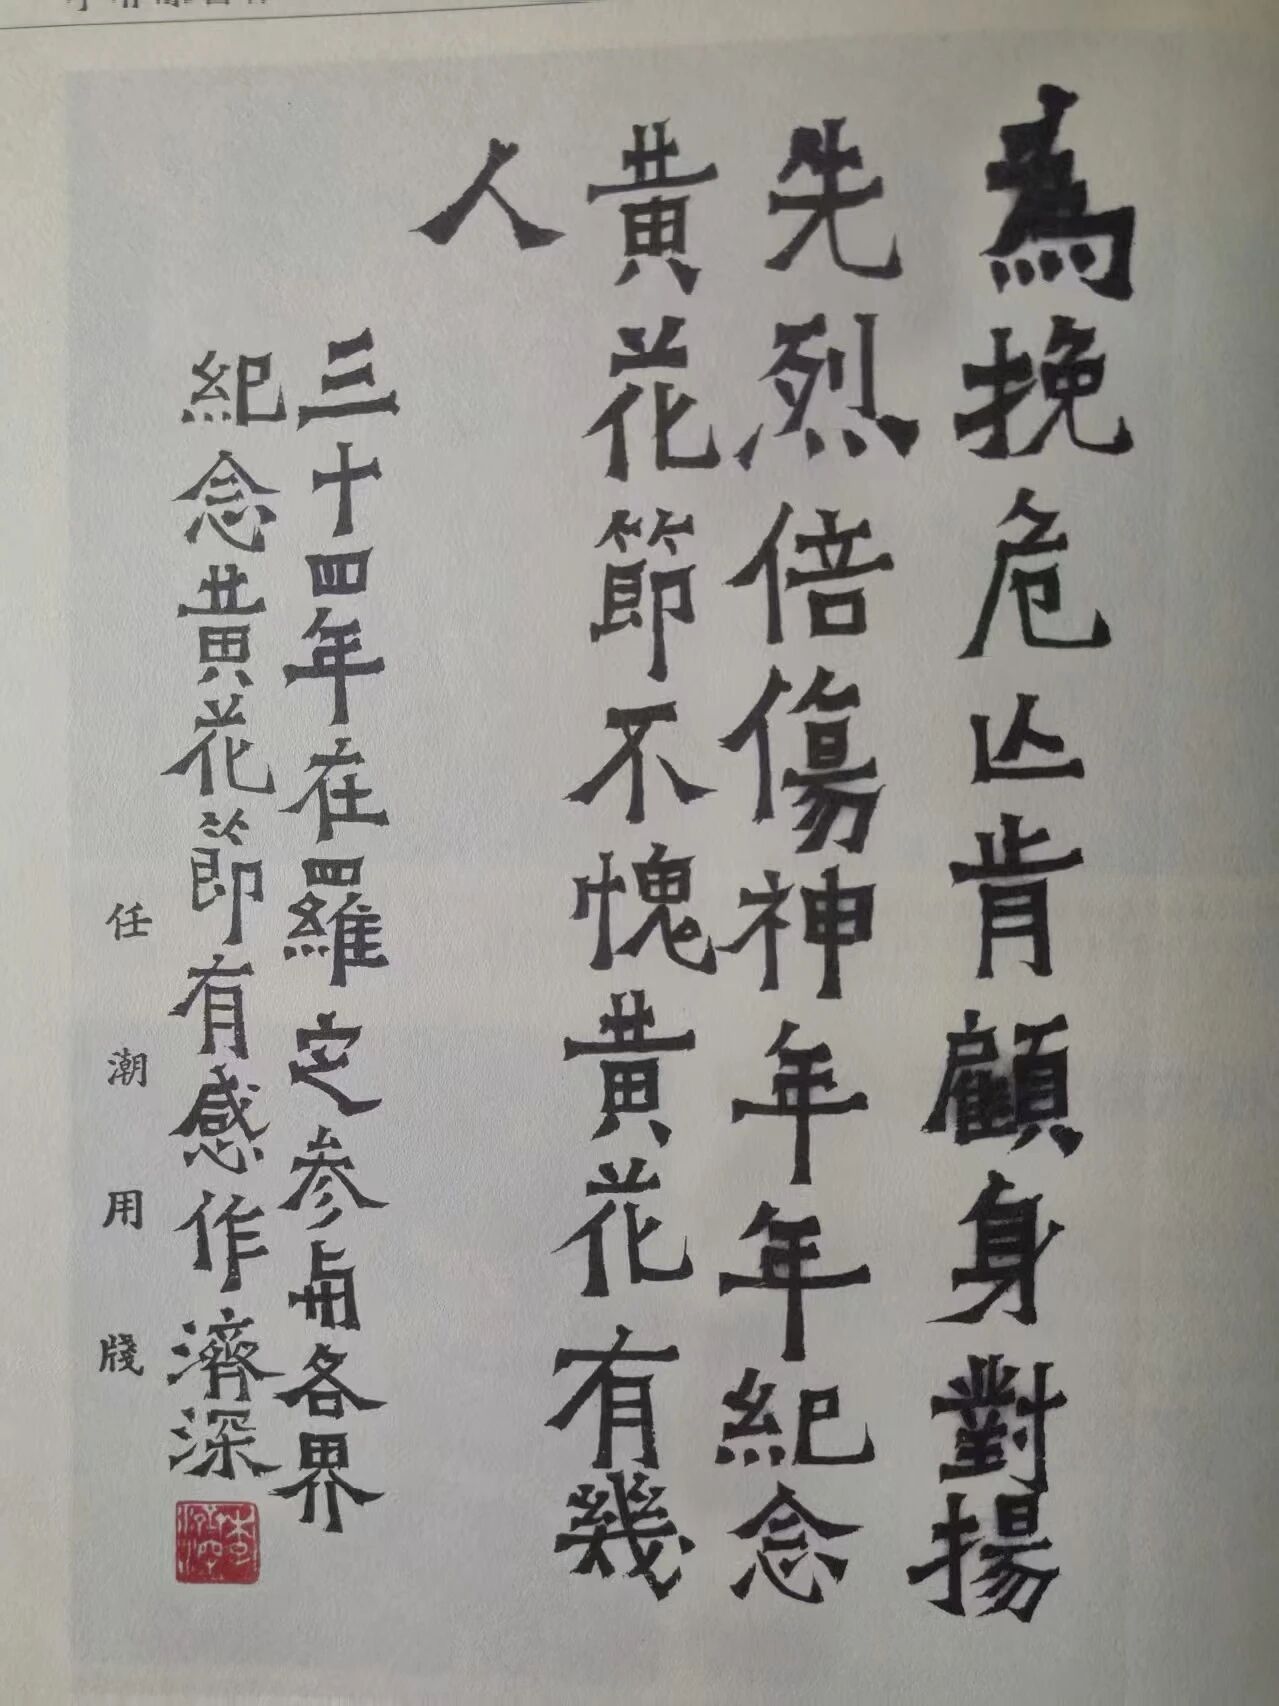 為挽危亾肯顧身對揚
先烈倍傷神年年紀念
黃花節不愧黃花有幾
人
三十四年在羅定参與各界
紀念黃花節有感作濟深
任潮用牋